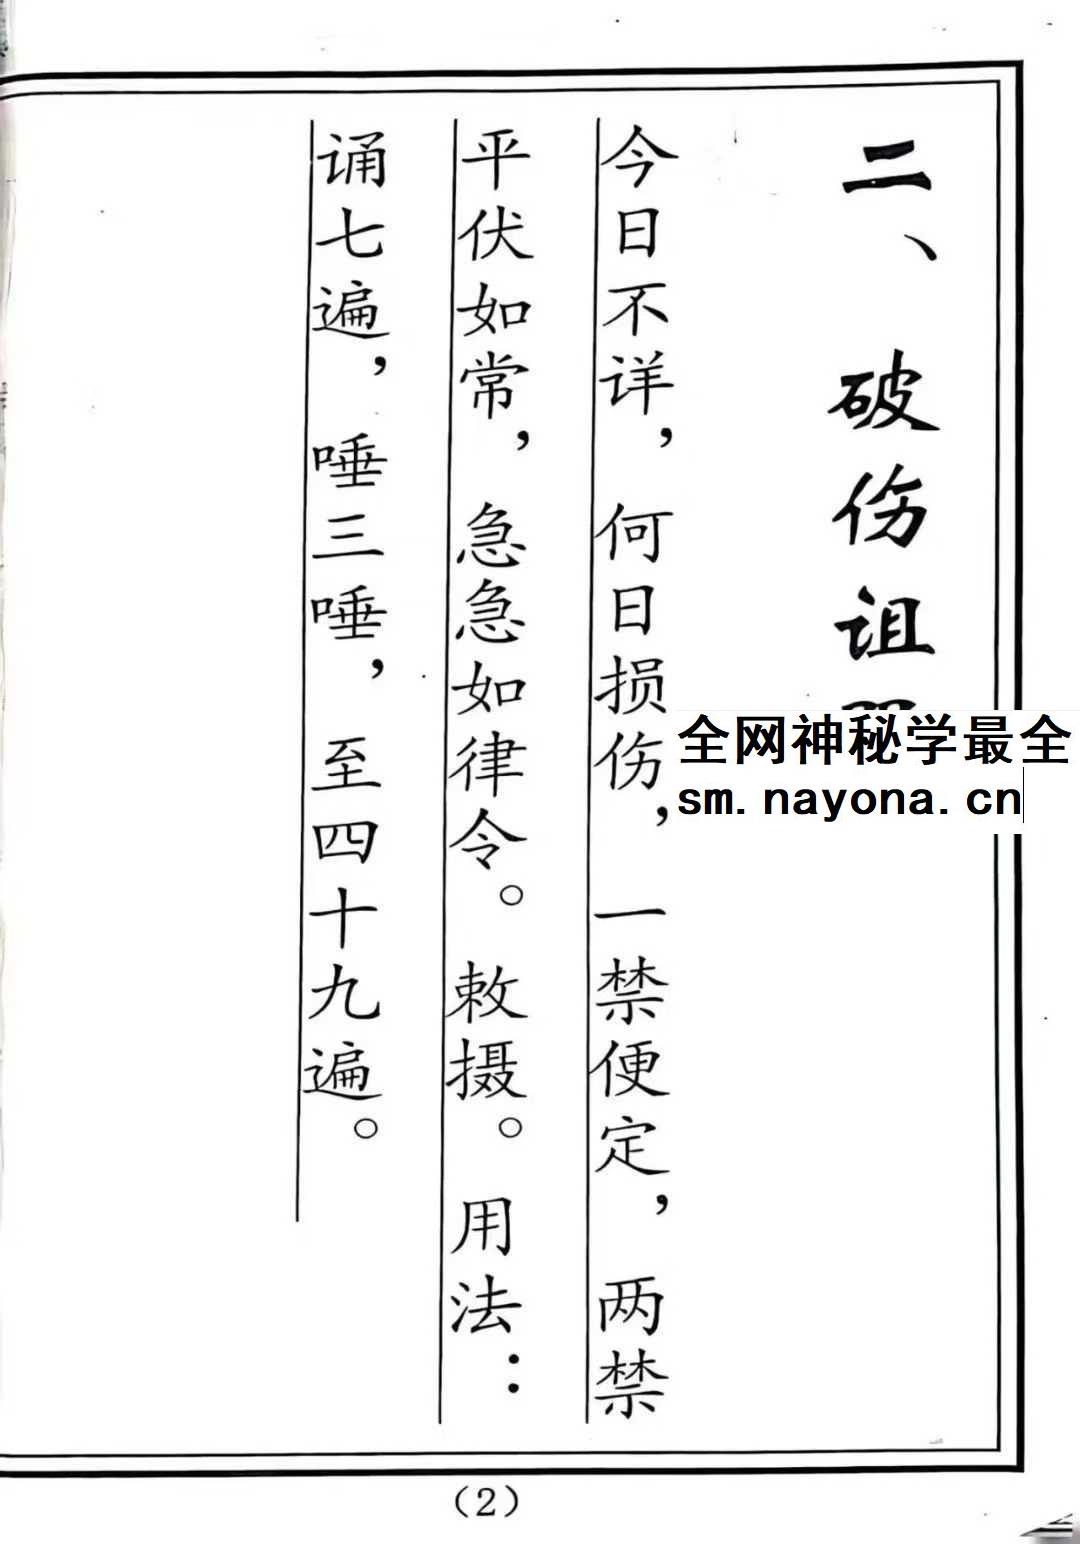 二、破伤诅
今日不详，何日损伤，一禁便定，两禁
平伏如常，急急如律令。敕摄。用法：
诵七遍，唾三唾，至四十九遍。
全网神秘学最全
sm.nayona.cn
（2）